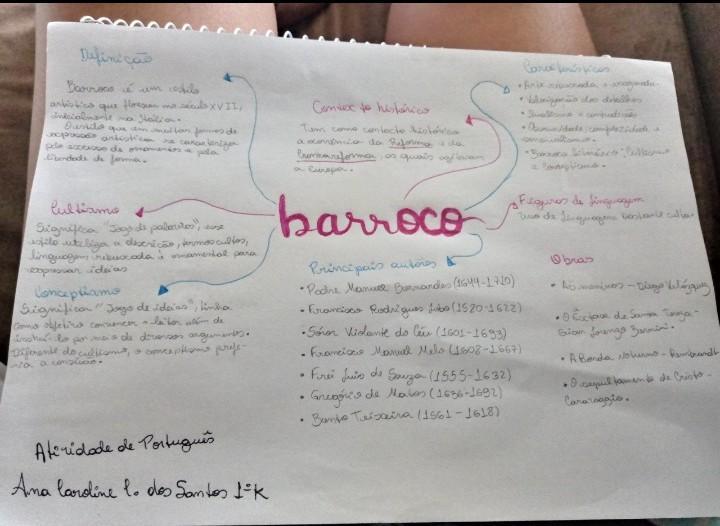 Definição
Barroco é um estilo
artístico que floresceu no século XVII,
inicialmente na Itália.
O estilo que em muitas formas de
expressão artística se caracteriza
pelo excesso de ornamentos e pela
liberdade de forma.
Contexto histórico
Tem como contexto histórico
a ocorrência da Reforma e da
Contrareforma, as quais agitavam
a Europa.
Características
• Arte rebuscada e exagerada.
• Valorização dos detalhes
• Dualismo e contradição
• Obscuridade, complexidade e
sensualismo.
• Barroco literário: Cultismo
e Conceptismo.
Cultismo
Significa "Jogo de palavras", esse
estilo utiliza a descrição, termos cultos,
linguagem rebuscada e ornamental para
expressar ideias
barroco
Figuras de linguagem
uso de linguagem bastante culta.
Conceptismo
Significa "Jogo de ideias", tinha
como objetivo convencer o leitor além de
instruí-lo por meio de diversos argumentos.
Diferente do cultismo, o conceptismo prefe-
ria a concisão.
Principais autores
• Padre Manuel Bernardes (1644-1710)
• Francisco Rodrigues Lobo (1520-1622)
• Sóror Violante do Céu (1601-1693)
• Francisco Manuel Melo (1608-1667)
• Frei Luis de Souza (1555-1632)
• Gregório de Matos (1636-1692)
• Bento Teixeira (1561-1618)
Obras
• As meninas - Diego Velázquez
• O Êxtase de Santa Tereza -
Giam Lorenzo Bernini.
• A Ronda noturna - Rembrandt
• O sepultamento de Cristo -
Caravaggio.
Atividade de Português
Ana Caroline P. dos Santos 1º K